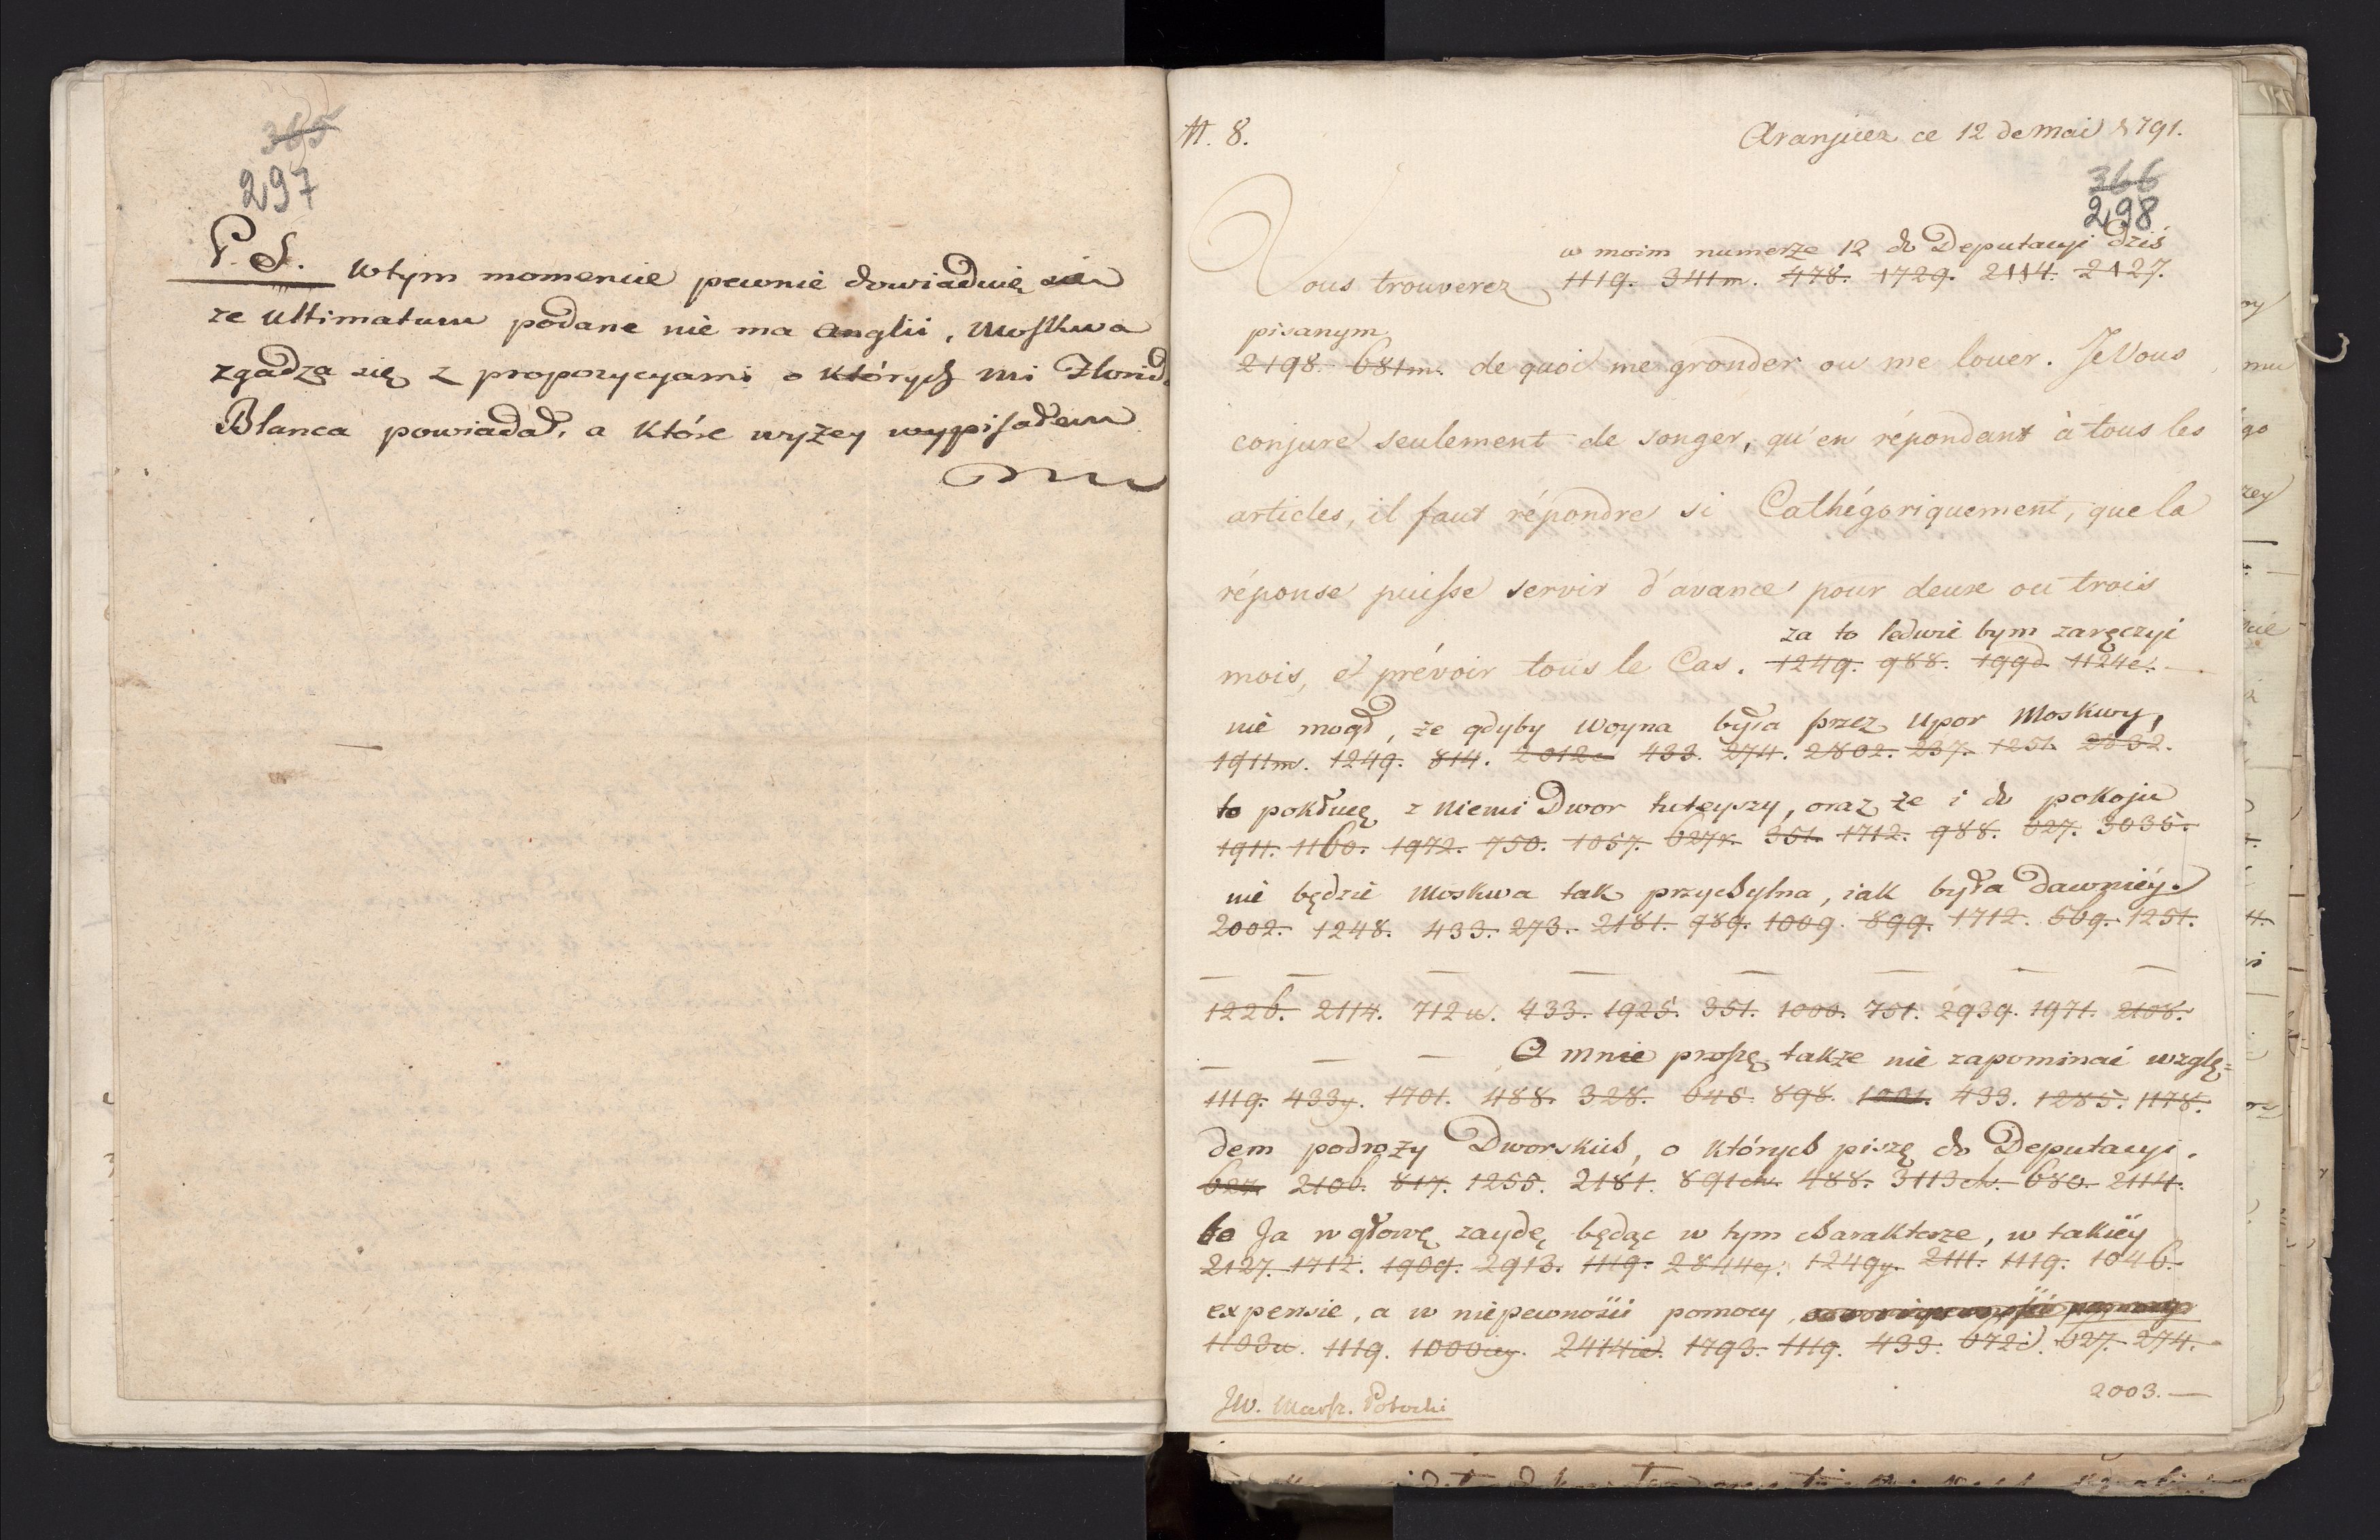 365
297
P. S. w tym momencie pewnie dowiaduię się
ze ultimatum podane nie ma Anglii, Moskwa
zgadza się z propozycyami o których mi Florida
Blanca powiadał, a które wyżey wypisałem
N. 8.
Aranjuez ce 12 de mai 1791.
366
298
w moim numerze 12 do Deputacyi dziś
Vous trouverez 1119. 3111m. 478. 1729. 2114. 2127.
pisanym
2198. 681m. de quoi me gronder ou me louer. Je Vous
conjure seulement de songer, qu'en répondant à tous les
articles, il faut répondre si Cathégoriquement, que la
réponse puisse servir d'avance pour deux ou trois
za to ledwie bym zaręczyć
mois, et prévoir tous le Cas. 1249. 988. 199d 1124c.
nie mogł, że gdyby woyna była przez upor Moskwy,
1911m. 1249. 814. 2012c 433. 274. 2802. 237. 1251. 2832.
to pokłucę z niemi Dwor tuteyszy, oraz że i do pokoju
1911. 1160. 1972. 750. 1057. 627z. 351. 1712. 988. 627. 3035.
nie będzie Moskwa tak przychylna, iak była dawniéy.
2002. 1248. 433. 273. 2181. 989. 1009. 899. 1712. 569. 1251.
1226. 2114. 712u. 433. 1925. 351. 1000. 751. 2939. 1971. 2108.
O mnie proszę także nie zapominać wzglę=
1119. 433y. 1701. 488. 328. 645. 898. 1001. 433. 1285. 1178.
dem podroży Dworskich, o których piszę do Deputacyi.
627. 2106. 817. 1255. 2181. 891ch. 488. 3113ch. 680. 2114.
bo Ja w głowę zaydę, będąc w tym charakterze, w takiéy
2127. 1712. 1909. 2913. 1119. 2844ę. 1249y. 2111. 1119. 1046.
expensie, a w niepewności pomocy
1103u. 1119. 1000iey. 2414id. 1793. 1119. 433. 672i. 627. 274.
2003.
JW. Marsz. Potocki